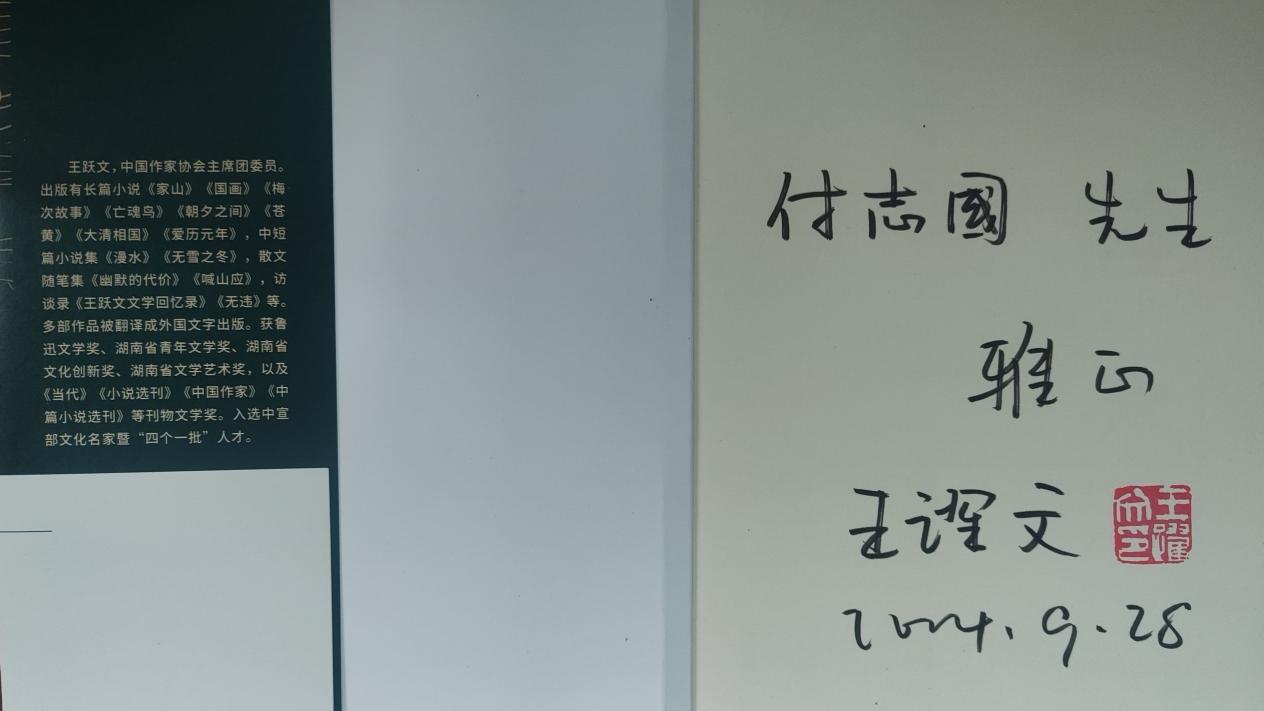 王跃文，中国作家协会主席团委员。
出版有长篇小说《家山》《国画》《梅
次故事》《亡魂鸟》《朝夕之间》《苍
黄》《大清相国》《爱历元年》，中短
篇小说集《漫水》《无雪之冬》，散文
随笔集《幽默的代价》《喊山应》，访
谈录《王跃文文学回忆录》《无违》等。
多部作品被翻译成外国文字出版。获鲁
迅文学奖、湖南省青年文学奖、湖南省
文化创新奖、湖南省文学艺术奖，以及
《当代》《小说选刊》《中国作家》《中
篇小说选刊》等刊物文学奖。入选中宣
部文化名家暨“四个一批”人才。
付志國 先生
雅正
王躍文
王躍文印
2024.9.28